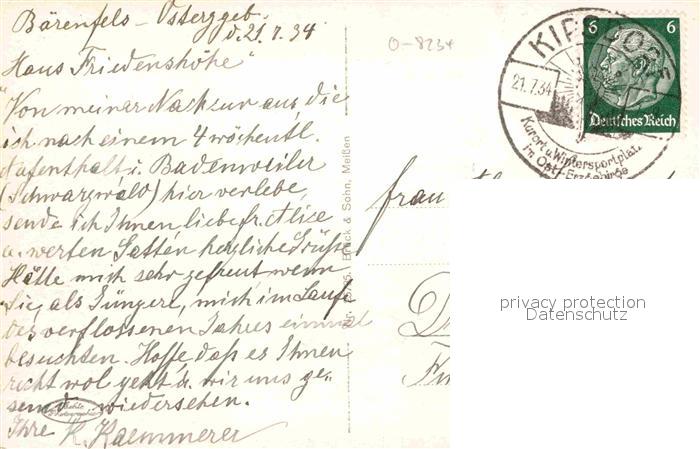 Bärenfels - Osterzgeb.
d. 21.7.34
O-8234
"Haus Friedenshöhe"
Von meiner Nachkur aus, die
ich nach einem 4 wöchentl.
Aufenthalt i. Badenweiler
(Schwarzwald) hier verlebe,
sende ich Ihnen liebe fr. Alice
u. werten Gatten herzliche Grüße
Hätte mich sehr gefreut wenn
Sie, als Jüngere, mich im Laufe
des verflossenen Jahres einmal
besuchten. Hoffe, daß es Ihnen
recht wol geht u. wir uns ge-
sund wiedersehen.
Ihre K. Kaemmerer
Brück & Sohn, Meißen
KIPSDORF
21.7.34
Kurort u. Wintersportplatz
im Ost-Erzgebirge
6 6
Deutsches Reich
Frau
privacy protection
Datenschutz